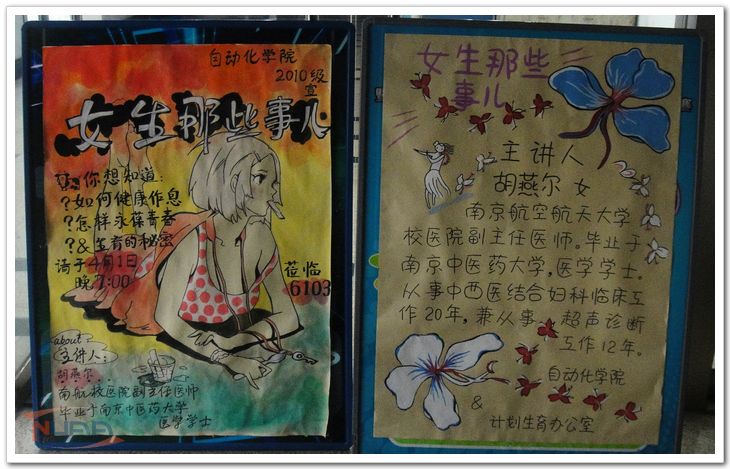 自动化学院
2010级
宣
女生那些事儿
你想知道:
?如何健康作息
?怎样永葆青春
?&生育的秘密
请于4月1日
晚7:00
莅临
6103
about
主讲人:
胡燕尔
南航校医院副主任医师
毕业于南京中医药大学
医学学士
女生那些
事儿
主讲人
胡燕尔 女
南京航空航天大学
校医院副主任医师。毕业于
南京中医药大学,医学学士。
从事中西医结合妇科临床工
作20年,兼从事 超声诊断
工作12年。
自动化学院
&
计划生育办公室